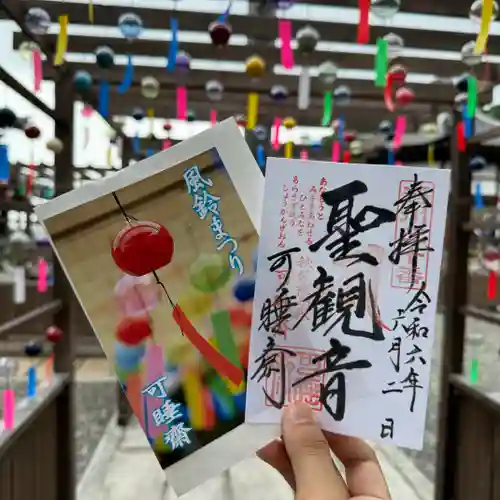 風鈴まつり
可睡齋
奉拝
令和六年
六月二日
聖観音
可睡斎